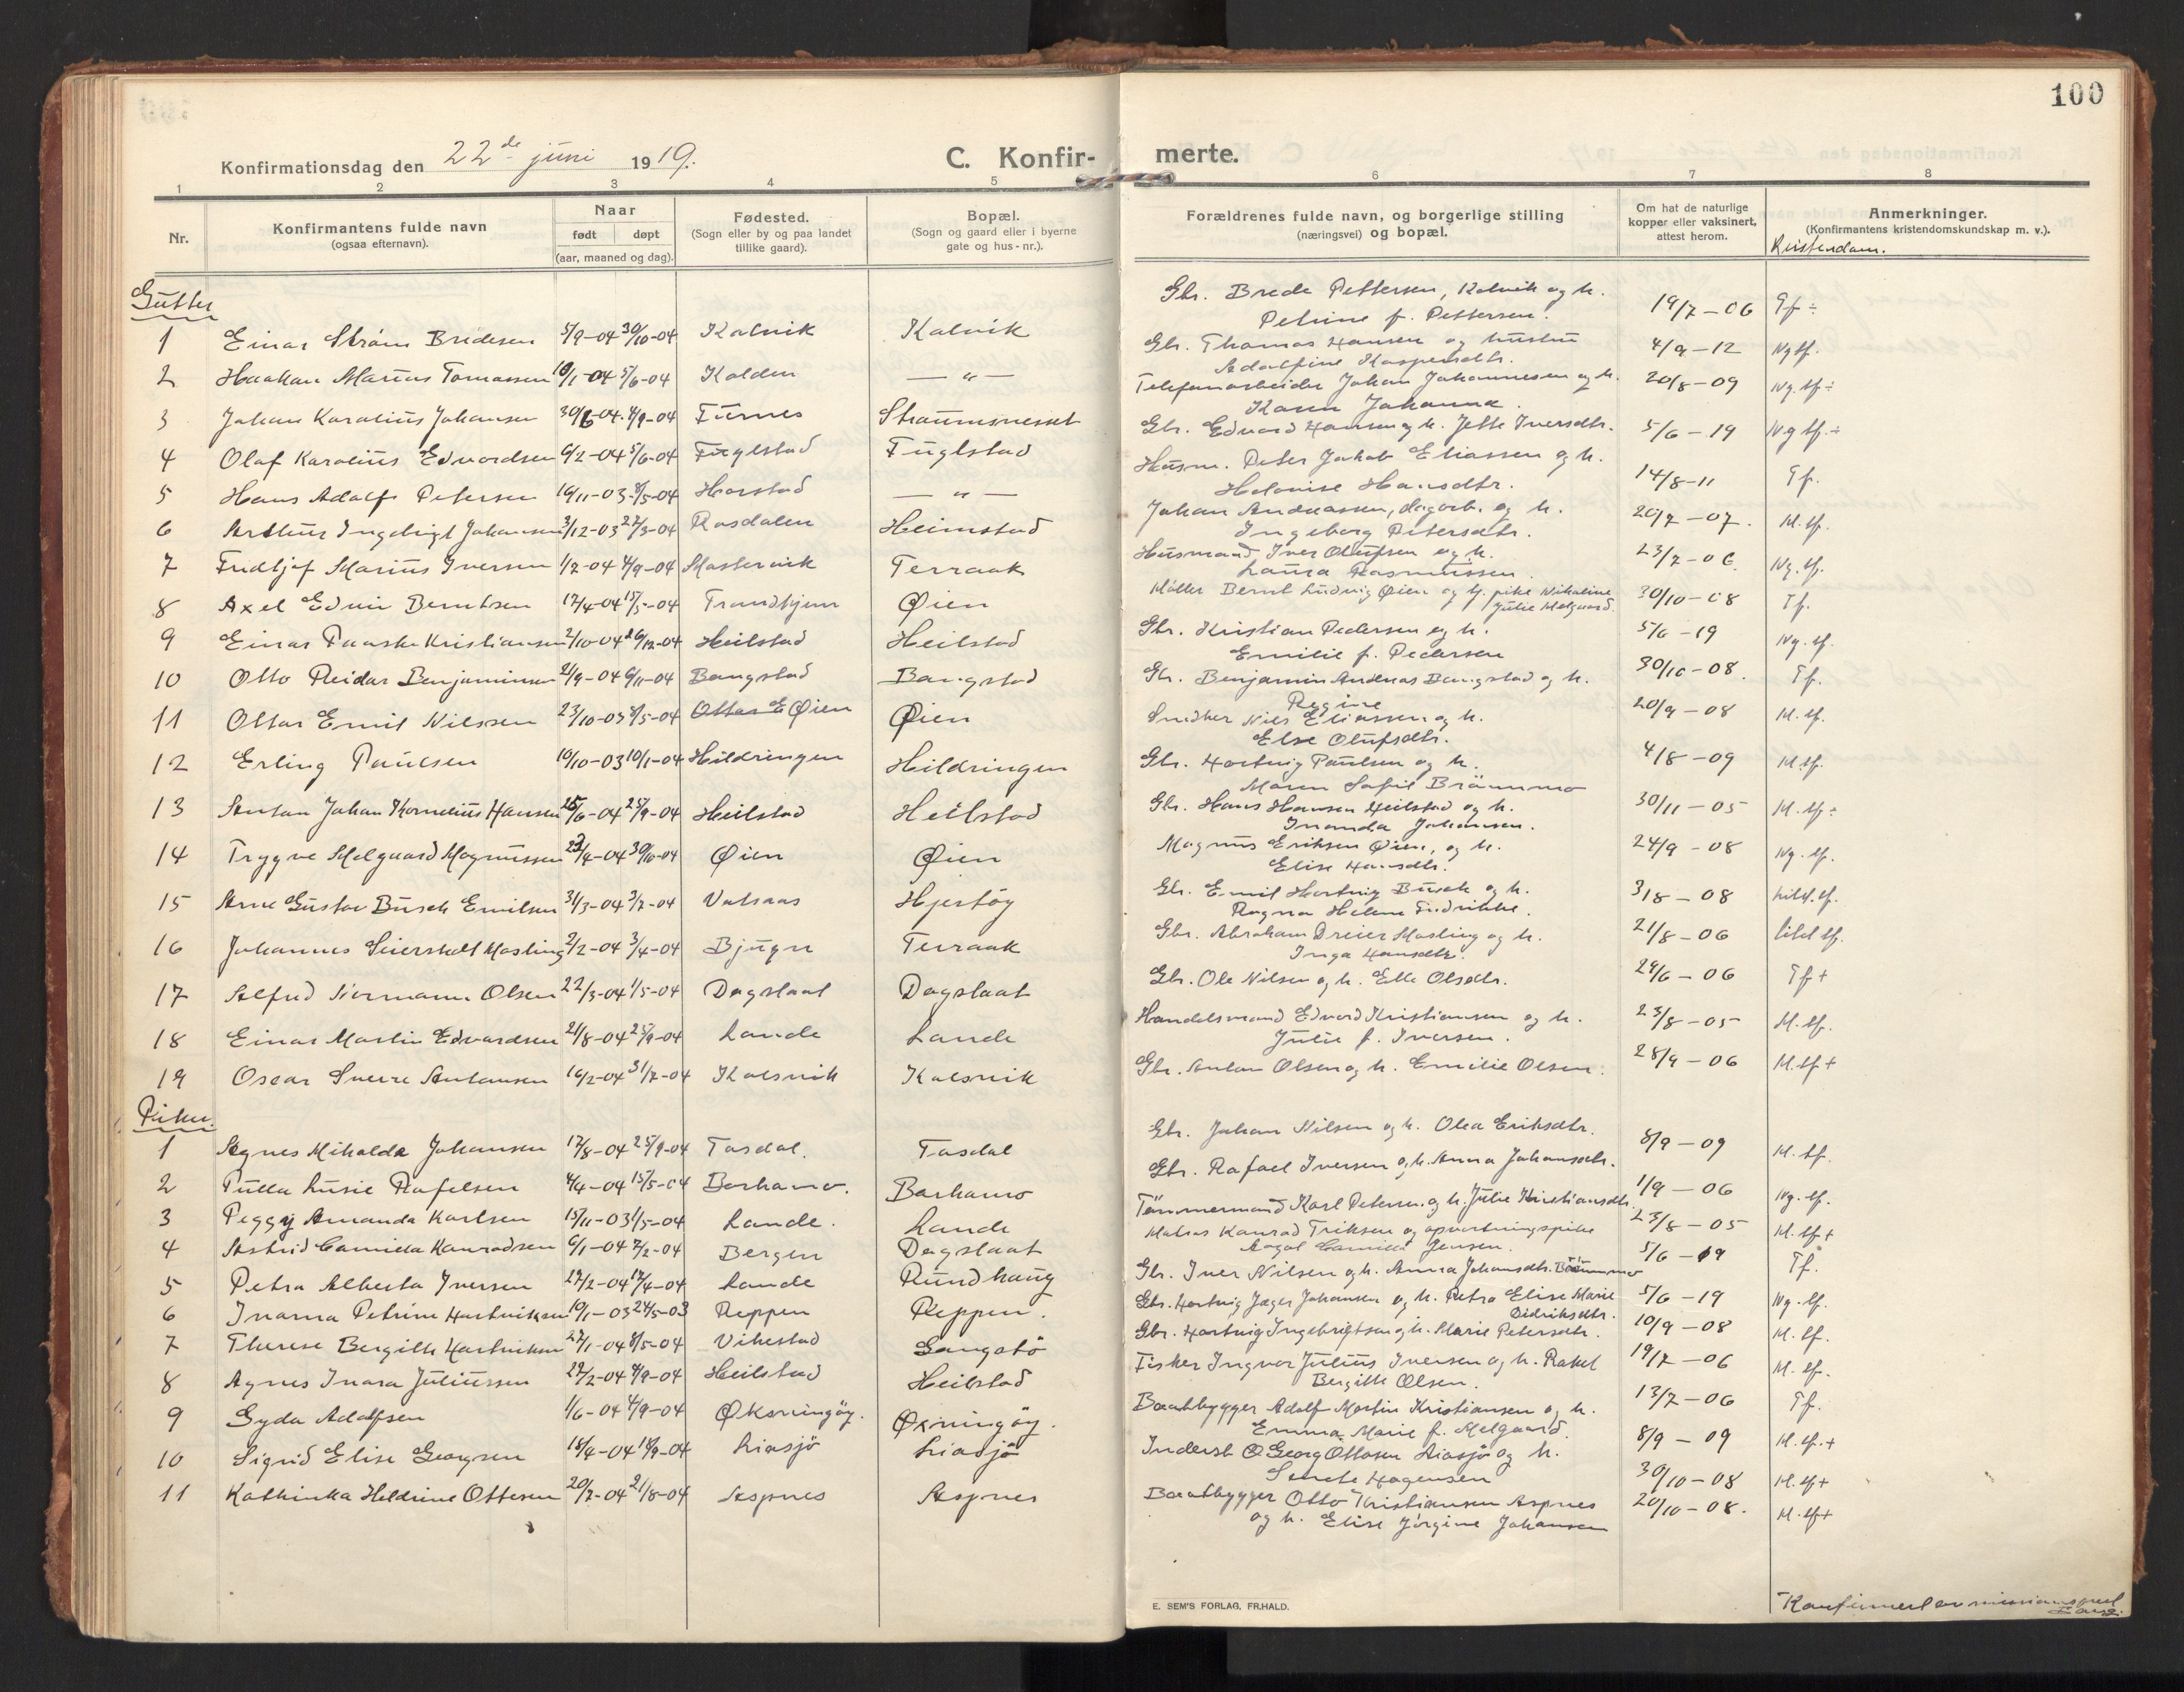 100
Konfirmationsdag den 22de juni 1919.
C. Konfir- merte.
1 2 3 4 5 6 7 8
Nr.
Konfirmantens fulde navn
(ogsaa efternavn).
Naar
født døpt
(aar, maaned og dag).
Fødested.
(Sogn eller by og paa landet
tillike gaard).
Bopæl.
(Sogn og gaard eller i byerne
gate og hus-nr.).
Forældrenes fulde navn, og borgerlige stilling
(næringsvei) og bopæl.
Om hat de naturlige
kopper eller vaksinert,
attest herom.
Anmerkninger.
(Konfirmantens kristendomskundskap m. v.).
Kristendom.
Gutter
1 Einar Strøm Bredesen 5/9-04 30/10-04 Kalvik Kalvik Gbr. Brede Pettersen, Kalvik og h. 19/7-06 Tf ÷
Petrine f. Pettersen.
2 Haakan Marius Tomassen 10/1-04 5/6-04 Kalden — " — Gbr. Thomas Hansen og hustru 4/9-12 Ng tf.
Adolfine Kaspersdtr.
3 Johan Karolius Johansen 30/6-04 4/9-04 Furnes Straumsnesset Telefonarbeider Johan Johannesen og h. 20/8-09 Ng. tf ÷
Karen Johanna.
4 Olaf Karolius Edvardsen 6/2-04 5/6-04 Fuglstad Fuglstad Gbr. Edvard Hansen og h. Jette Iversdtr. 5/6-19 Ng tf. ÷
5 Hans Adolf Petersen 16/11-03 8/5-04 Horstad — " — Husm. Peter Jakob Eliassen og h. 14/8-11 Tf.
Hansdtr.
6 Arthur Ingebrigt Johansen 3/12-03 27/3-04 Rosdalen Heimstad Johan Andreassen, dagarb. og h. 20/7-07. M. tf.
Ingeborg Petersdtr.
7 Fridtjof Marius Iversen 1/7-04 4/9-04 Terraak Husmand Iver Olufsen og h. 23/7-06 Ng. tf.
Laura Rasmussen.
8 Axel Edvin Berntsen 17/4-04 15/5-04 Trondhjem Øien Møller Bernt Ludvig Øien og tj. pike Nikoline 30/10-08 Tf.
Julie Melgaard.
9 Einar Paaske Kristiansen 2/10-04 26/12-04 Heilstad Heilstad Gbr. Kristian Pedersen og h. 5/6-19 Ng. tf.
Emilie f. Pedersen
10 Otto Reidar Benjaminsen 2/9-04 6/11-04 Bangstad Bangstad Gbr. Benjamin Andreas Bangstad og h. 30/10-08. Tf.
Regine
11 Ottar Emil Nilssen 23/10-03 8/5-04 Ottar E Øien Øien Snidker Nils Eliassen og h. 20/9-08 M. tf.
Else Olufsdtr.
12 Erling Paulsen 10/10-03 10/1-04 Hildringen Hildringen Gbr. Hartvig Paulsen og h. 4/8-09 M. tf.
Maren Sofie Brønmo
13 Anton Johan Kornelius Hansen 25/6-04 25/9-04 Heilstad Heilstad Gbr. Hans Hansen Heilstad og h. 30/11-05 M. tf ÷
Inanda Johansen.
14 Trygve Melgaard Magnussen 23/4-04 30/10-04 Øien Øien Magnus Eriksen Øien, og h. 24/9-08 Ng. tf.
Elise Hansdtr.
15 Arne Gustav Busch Emilsen 31/3-04 3/7-04 Valsaas Hjertøy Gbr. Emil Hartvig Busch og h. 3/8-08
Ragna Helene Fredrikke.
16 Johannes Seierstedt Mosling 2/2-04 3/4-04 Bjugn Terraak Gbr. Abraham Dreier Mosling og h. 21/8-06
Inga Hansdtr.
17 Alfred Normann Olsen 22/3-04 1/5-04 Dagslaat Dagslaat Gbr. Ole Nilsen og h. Elle Olsdtr. 29/6-06 Tf +
18 Einar Martin Edvardsen 21/8-04 25/9-04 Lande Lande Handelsmand Edvard Kristiansen og h. 23/8-05 M. tf.
Julie f. Iversen.
19 Oscar Sverre Antonsen 16/2-04 31/7-04 Kalsvik Kalsvik Gbr. Anton Olsen og h. Emilie Olsen. 28/9-06 M. tf +
Piker.
1 Agnes Mikalda Johansen 17/8-04 25/9-04 Tosdal. Tosdal Gbr. Johan Nilsen og h. Olea Eriksdtr. 8/9-09 M. tf.
2 Pulla Lusie Rafelsen 4/4-04 15/5-04 Borkamo. Barkamo Gbr. Rafael Iversen og h. Anna Johansdtr. 1/9-06 Ng. tf.
3 Peggy Amanda Karlsen 15/11-03 1/5-04 Lande. Lande Tømmermand Karl Petersen og h. Julie Kristiansdtr. 23/8-05 M. tf +
4 Astrid Camilla Konradsen 6/1-04 7/2-04 Bergen Dagslaat Matros Konrad Eriksen og opvartningspike 5/6-19 Tf.
Aagot Camilla Jensen.
5 Petra Alberta Iversen 27/2-04 17/4-04 Lande Rundhaug Gbr. Iver Nilsen og h. Anna Johansdtr. Brønmo 5/6-19 Ng. tf.
6 Inarna Petrine Hartviksen 10/1-03 24/5-03 Reppen Reppen. Gbr. Hartvig Jæger Johansen og h. Petra Elise Marie 10/9-08 M. tf.
Didriksdtr.
7 Therese Bergitte Hartviksen 27/1-04 8/5-04 Vikestad Langstö Gbr. Hartvig Ingebrigtsen og h. Marie Petersdtr. 19/7-06 M. tf.
8 Agnes Inara Juliussen 27/2-04 4/9-04 Heilstad Heilstad Fisker Ingvar Julius Iversen og h. Rakel 13/7-06 Tf.
Bergitte Olsen.
9 Gyda Adolfsen 1/6-04 4/9-04 Øksningøy. Øxningøy. Baatbygger Adolf Martin Kristiansen og h. 8/9-09 M. tf. +
Emma Marie f. Melgaard.
10 Sigrid Elise Georgsen 15/4-04 18/9-04 Liasjø Liasjø Inderst O. Georg Ottosen Liasjø og h. 30/10-08 M. tf +
Hagensen
11 Kathinka Heldrine Ottesen 20/7-04 21/8-04 Aspnes Aspnes Baatbygger Otto Kristiansen Aspnes 20/10-08. M. tf +
og h. Elise Jørgine Johansen
E. SEM'S FORLAG, FR.HALD.
Konfirmert av missionsprest